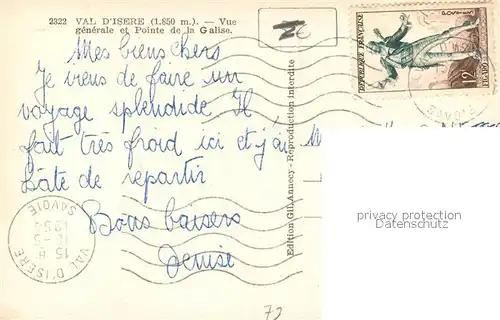 2322 VAL D'ISERE (1.850 m.). — Vue
générale et Pointe de la Galise.
Mes biens chers
Je viens de faire un
voyage splendide Il
fait très froid ici et j'ai
hâte de repartir
Bons baisers
Denise
Edition GIL Annecy - Reproduction interdite
REPUBLIQUE FRANÇAISE
FIGARO
12F
VAL D'ISERE
SAVOIE
15 H
12-5
1954
privacy protection
Datenschutz
72